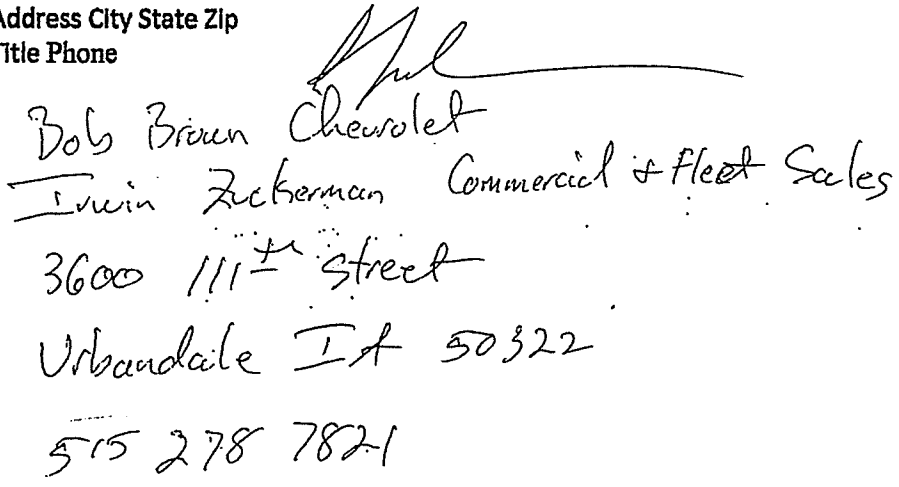 Address City State Zip
Title Phone
Bob Brown Chevrolet
Irwin Zuckerman Commercial & Fleet Sales
3600 111th Street
Urbandale IA 50322
515 278 7821